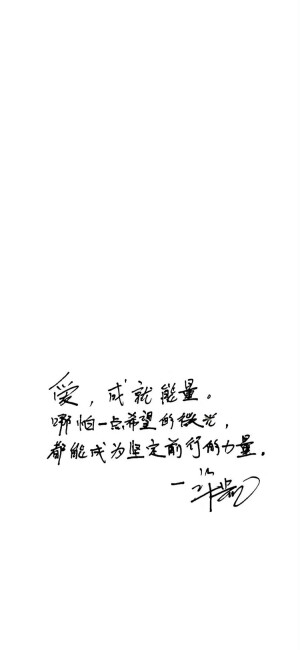 爱，成就能量。
哪怕一点希望的微光，
都能成为坚定前行的力量。